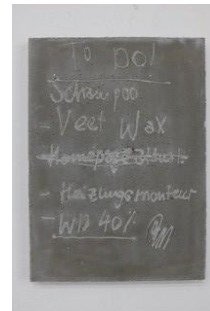 To Do!
Schampoo
- Veet Wax
- Homepage
- Heizungsmonteur
- WD 40%